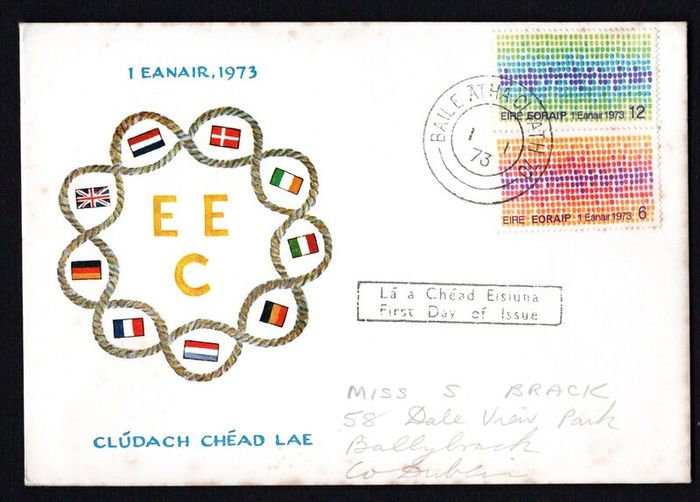 1 EANAIR, 1973
E E
C
BAILE ÁTHA CLIATH
1 1
73
EIRE EORAIP 1 Eanair 1973 12
EIRE EORAIP 1 Eanair 1973 6
Lá a Chéad Eisiuna
First Day of Issue
MISS S. BRACK
58 Dale View Park
Ballybrack
Co Dublin
CLÚDACH CHÉAD LAE